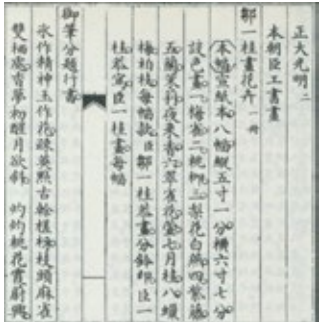 正大光明 二
本朝臣工書畫
鄒一桂畫花卉 一冊
本幅宣紙本八幅縱五寸一分橫六寸七分
設色畫一梅雀二桃柳三梨花白燕四紫藤
五蘭夜來香六翠雀花七月桂八蠟
梅柏枝每幅款臣鄒一桂恭畫分鈐印臣一
桂恭寫臣一桂畫每幅
御筆分題行書
氷作精神玉作花疎英點古槎枒枝頭麻雀
雙栖處香夢初醒月欲斜 灼灼桃花霞蔚興